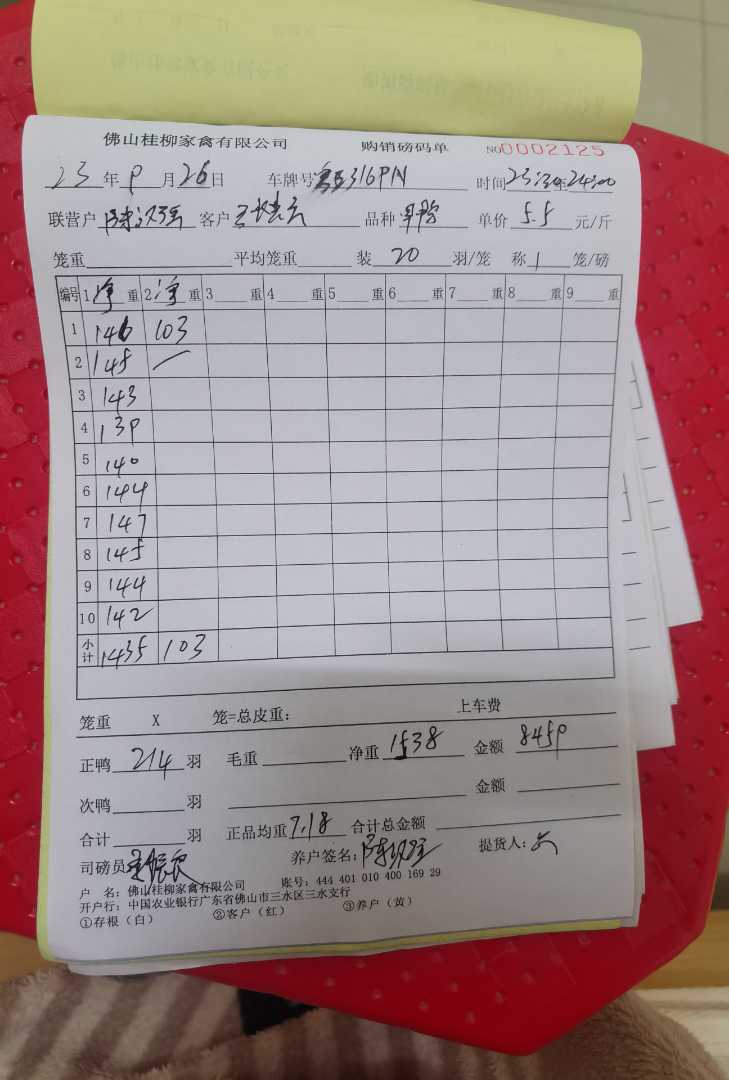 佛山桂柳家禽有限公司 购销磅码单 NO0002125
23年9月26日 车牌号316PN 时间23:30至24:00
联营户 客户 品种 单价5.5元/斤
笼重 平均笼重 装20羽/笼 称1笼/磅
编号 1净重 2净重 3重 4重 5重 6重 7重 8重 9重
1 146 103
2 145 —
3 143
4 139
5 140
6 144
7 147
8 145
9 144
10 142
小计 1435 103
笼重 X 笼=总皮重: 上车费
正鸭214羽 毛重 净重1538 金额8459
次鸭 羽 金额
合计 羽 正品均重7.18 合计总金额
司磅员 养户签名: 提货人:
户 名: 佛山桂柳家禽有限公司 账号: 444 401 010 400 169 29
开户行: 中国农业银行广东省佛山市三水区三水支行
①存根(白) ②客户(红) ③养户(黄)